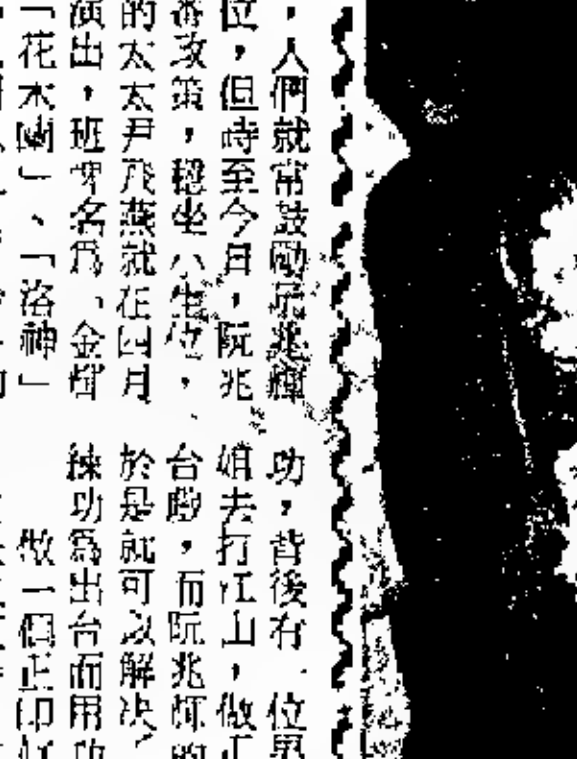 ，人們就常鼓勵阮兆輝
位，但時至今日，阮兆
政策，穩坐小生位，
的太太尹飛燕就在四月
演出，班牌名為「金輝
「花木蘭」、「洛神」
功，背後有一位
姐去打江山，做
台戲，而阮兆輝的
於是就可以解決
練功為出台而用功
做一個正印